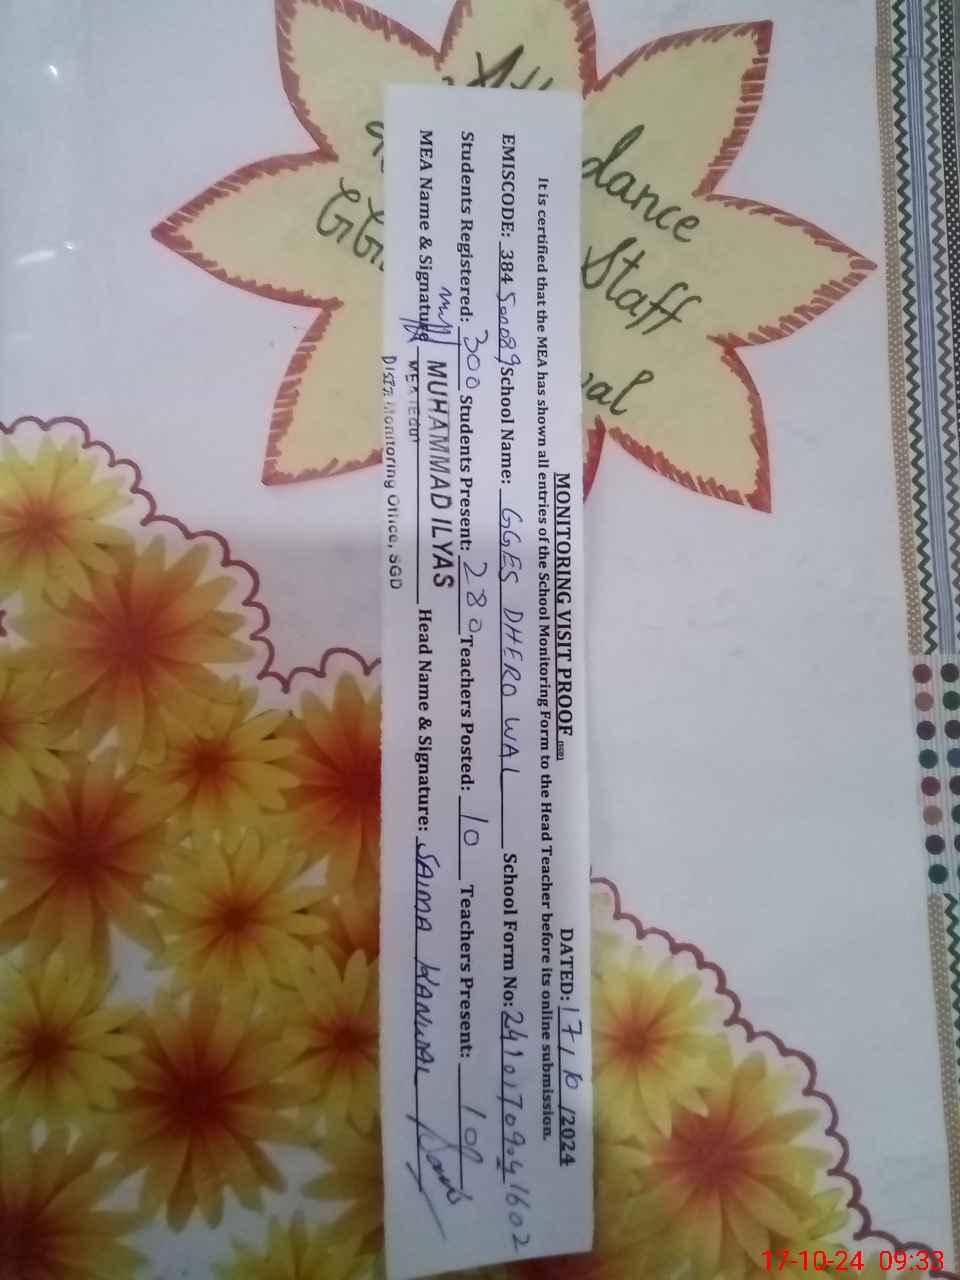 MONITORING VISIT PROOF (SGD) DATED: 17/10/2024
It is certified that the MEA has shown all entries of the School Monitoring Form to the Head Teacher before its online submission.
EMISCODE: 384 School Name: GGES DHERO WAL School Form No:
Students Registered: 300 Students Present: 280 Teachers Posted: 10 Teachers Present: 10
MEA Name & Signature MUHAMMAD ILYAS Head Name & Signature: SAIMA KANWAL
Distt: Monitoring Office, SGD
dance
Staff
17-10-24 09:33